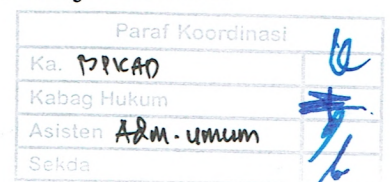 Paraf Koordinasi
Ka. DPKAD
Kabag Hukum
Asisten Adm. umum
Sekda